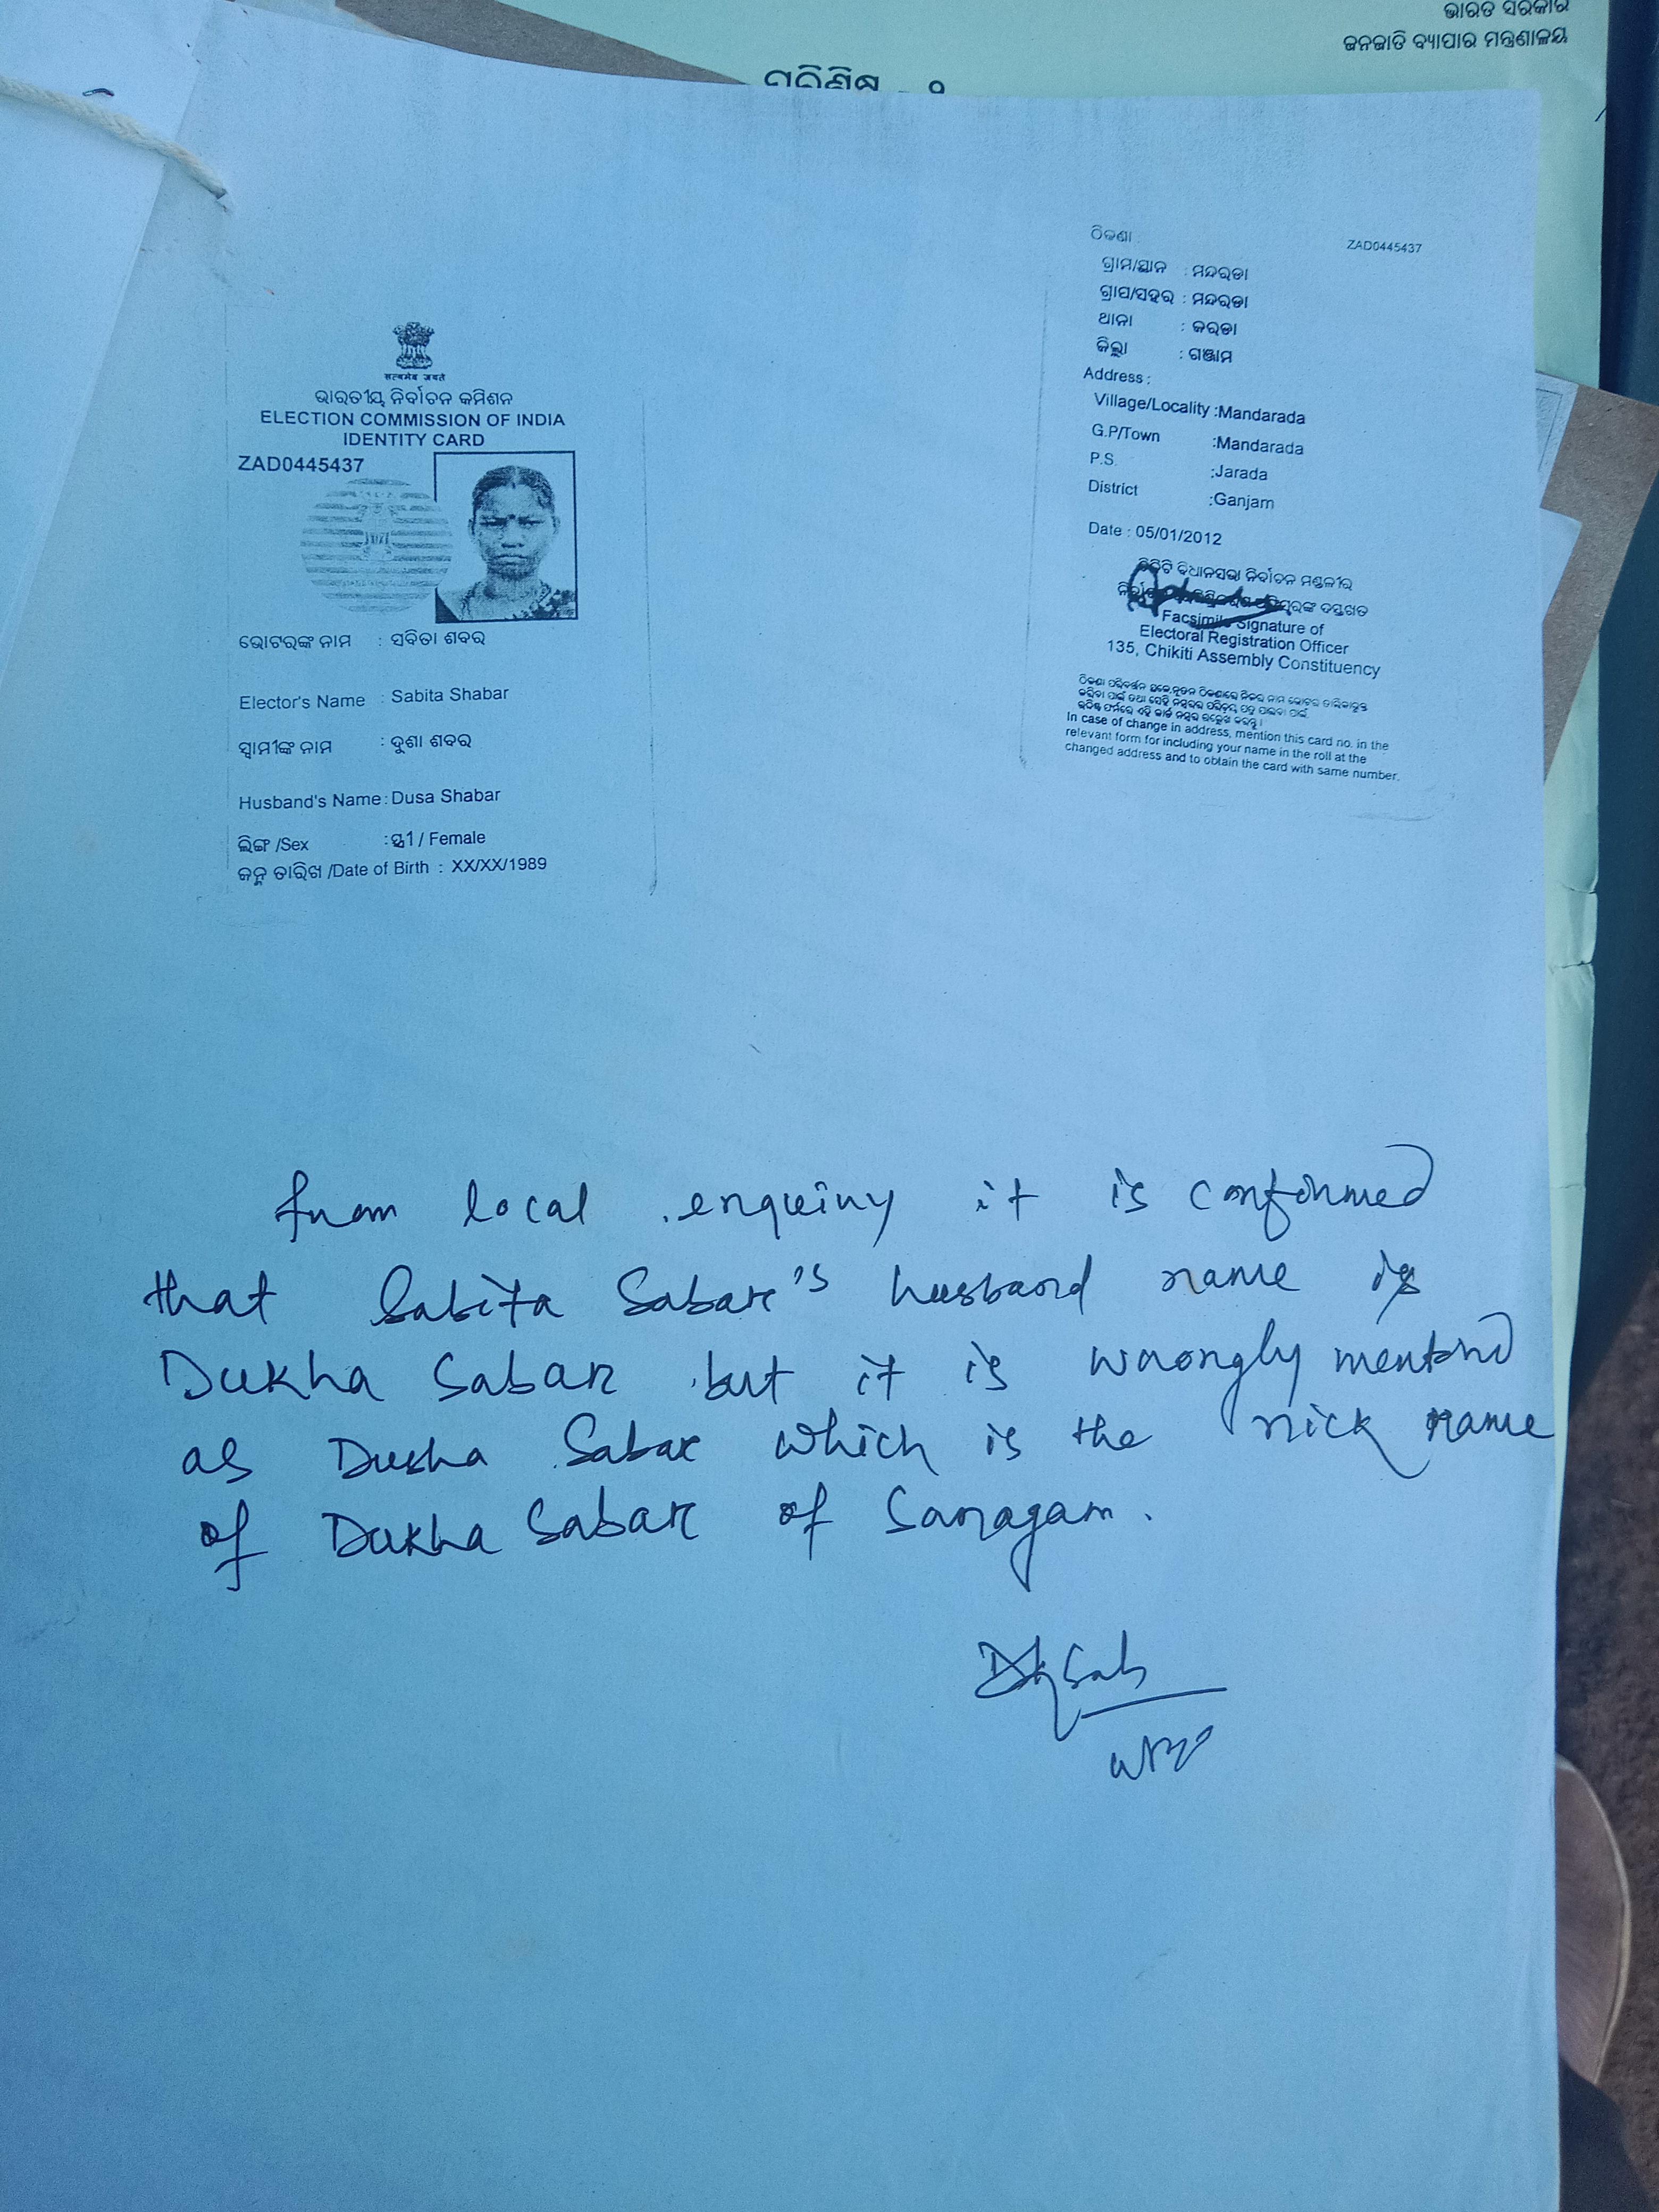 ଭାରତ ସରକାର
ଜନଜାତି ବ୍ୟାପାର ମନ୍ତ୍ରଣାଳୟ
सत्यमेव जयते
ଭାରତୀୟ ନିର୍ବାଚନ କମିଶନ
ELECTION COMMISSION OF INDIA
IDENTITY CARD
ZAD0445437
ଭୋଟରଙ୍କ ନାମ : ସବିତା ଶବର
Elector's Name : Sabita Shabar
ସ୍ୱାମୀଙ୍କ ନାମ : ଦୁଶା ଶବର
Husband's Name : Dusa Shabar
ଲିଙ୍ଗ /Sex : ସ୍ତ୍ରୀ / Female
ଜନ୍ମ ତାରିଖ /Date of Birth : XX/XX/1989
ଠିକଣା ZAD0445437
ଗ୍ରାମ/ସ୍ଥାନ : ମନ୍ଦରଡା
ଗ୍ରାପ/ସହର : ମନ୍ଦରଡା
ଥାନା : ଜରଡା
ଜିଲ୍ଲା : ଗଞ୍ଜାମ
Address :
Village/Locality :Mandarada
G.P/Town :Mandarada
P.S. :Jarada
District :Ganjam
Date : 05/01/2012
ବିଧାନସଭା ନିର୍ବାଚନ ମଣ୍ଡଳୀର
ଦସ୍ତଖତ
Facsimile Signature of
Electoral Registration Officer
135, Chikiti Assembly Constituency
In case of change in address, mention this card no. in the
relevant form for including your name in the roll at the
changed address and to obtain the card with same number.
from local enquiry it is confirmed
that Sabita Sabar's husband name is
Dukha Sabar but it is wrongly mentond
as Dusha Sabar which is the nick name
of Dukha Sabar of Sanagam.